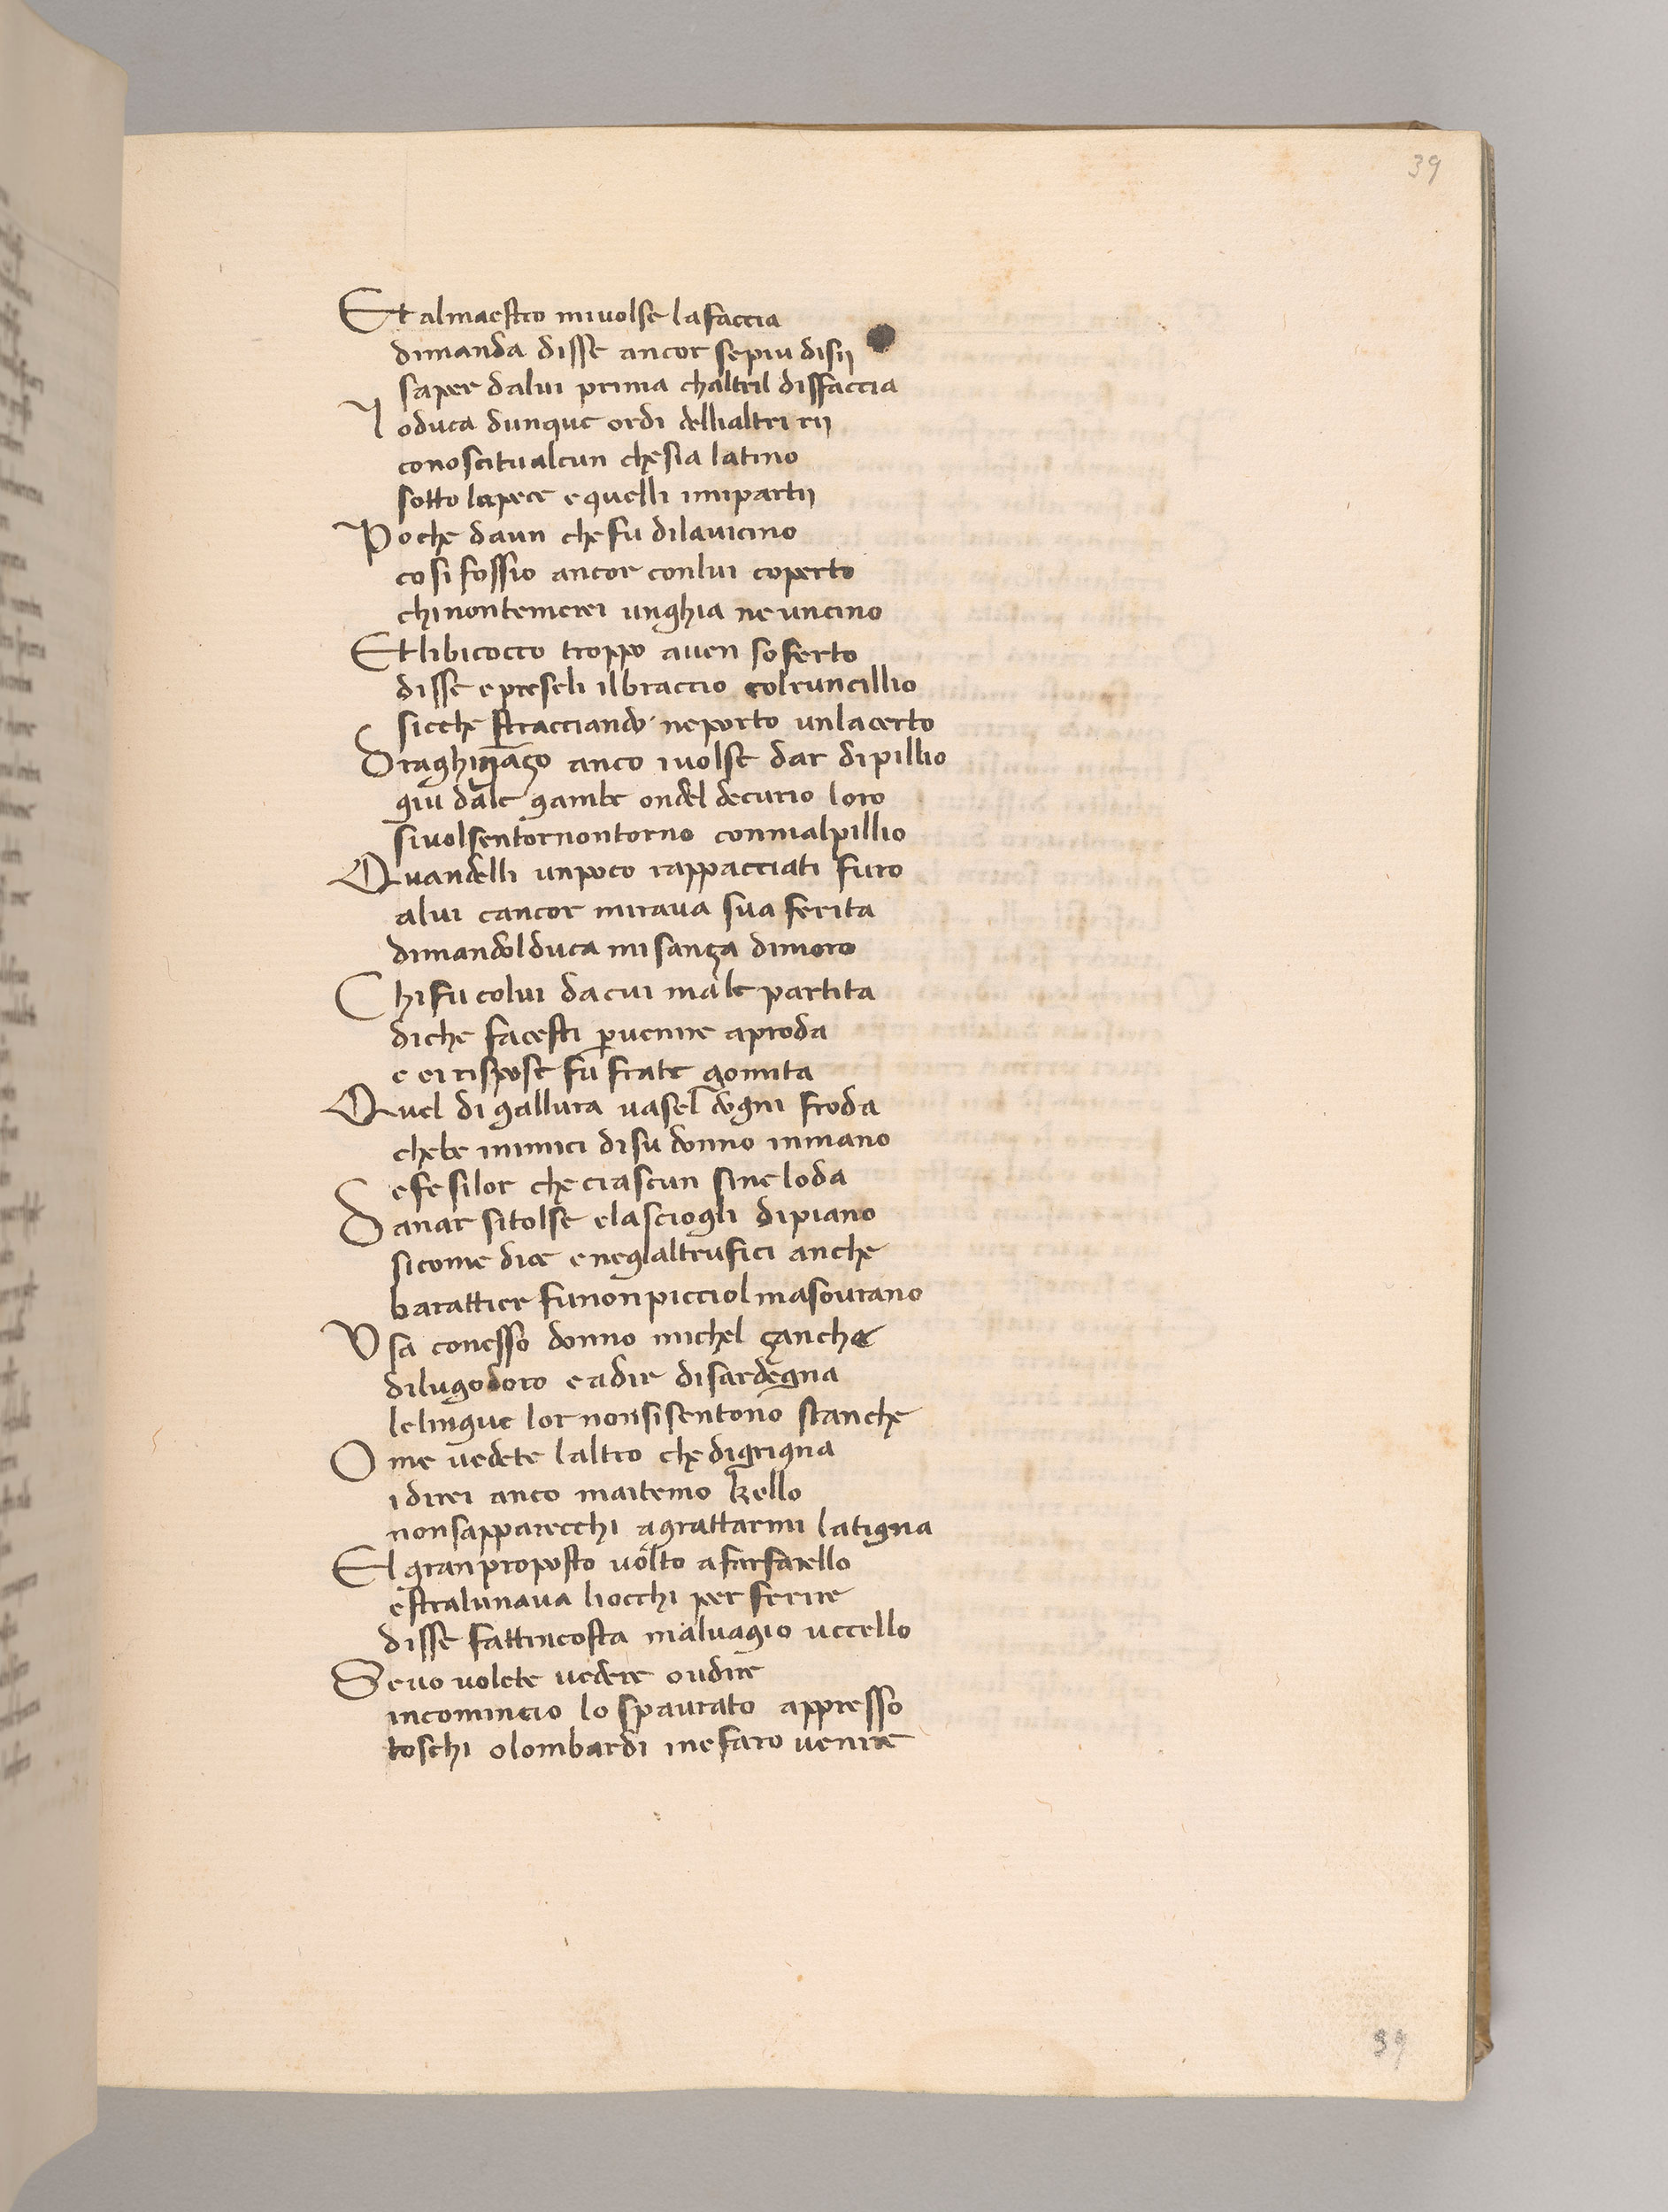 39
Et almaestro mivolse lafaccia
dimanda disse ancor sepiu disij
saper dalui prima chaltril disfaccia
Ioduca dunque ordi delliialtri rij
conoscitualcun chesia latino
sotto lapece equelli imipartij
Poche daun chefu dilavicino
cosi fossio ancor conlui coperto
chinontemerei unghia neuncino
Etlibicocco troppo aven soferto
disse epreseli ilbraccio colruncillio
sicche stracciando neporto unlacerto
Draghinaço anco ivolse dar dipillio
giu dale gambe ondel decurio loro
sivolsentornontorno conmalpillio
Quandelli unpoco rappacciati furo
alui cancor mirava sua ferita
dimandolduca misança dimoro
Chifu colui dacui mala partita
diche facesti pvenire aproda
e eirispose fu frate gomita
Quel digallura vasel dogni froda
chebe inimici disu donno inmano
efesilor checiascun sineloda
Danar sitolse elasciogli dipiano
sicome dice eneglaltrufici anche
barattier funonpicciol masovrano
Usa conesso donno michel çanche
dilugodoro eadir disardegna
lelingue lor nonsisentono stanche
Ome vedete laltro chedigrigna
idirei anco maitemo kello
nonsapparecchi agrattarmi latigna
El granproposto volto afarfarello
estralunava liocchi per ferire
disse fattincosta malvagio uccello
Sevo volete vedere oudire
incomincio lo spaurato appresso
toschi olombardi inefaro venire
39